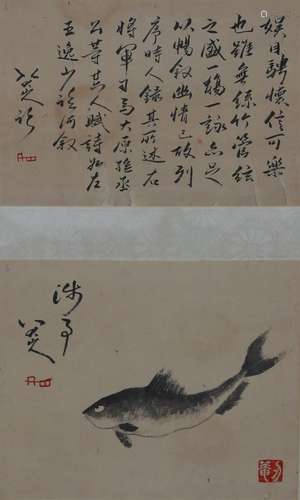 娱目騁懷信可樂
也雖無絲竹管絃
之盛一觴一詠亦足
以暢敘幽情已故列
序時人錄其所述右
將軍司馬太原孫丞
公等廿六人賦詩如左
王逸少臨河敘
八大山人記
涉事
八大山人